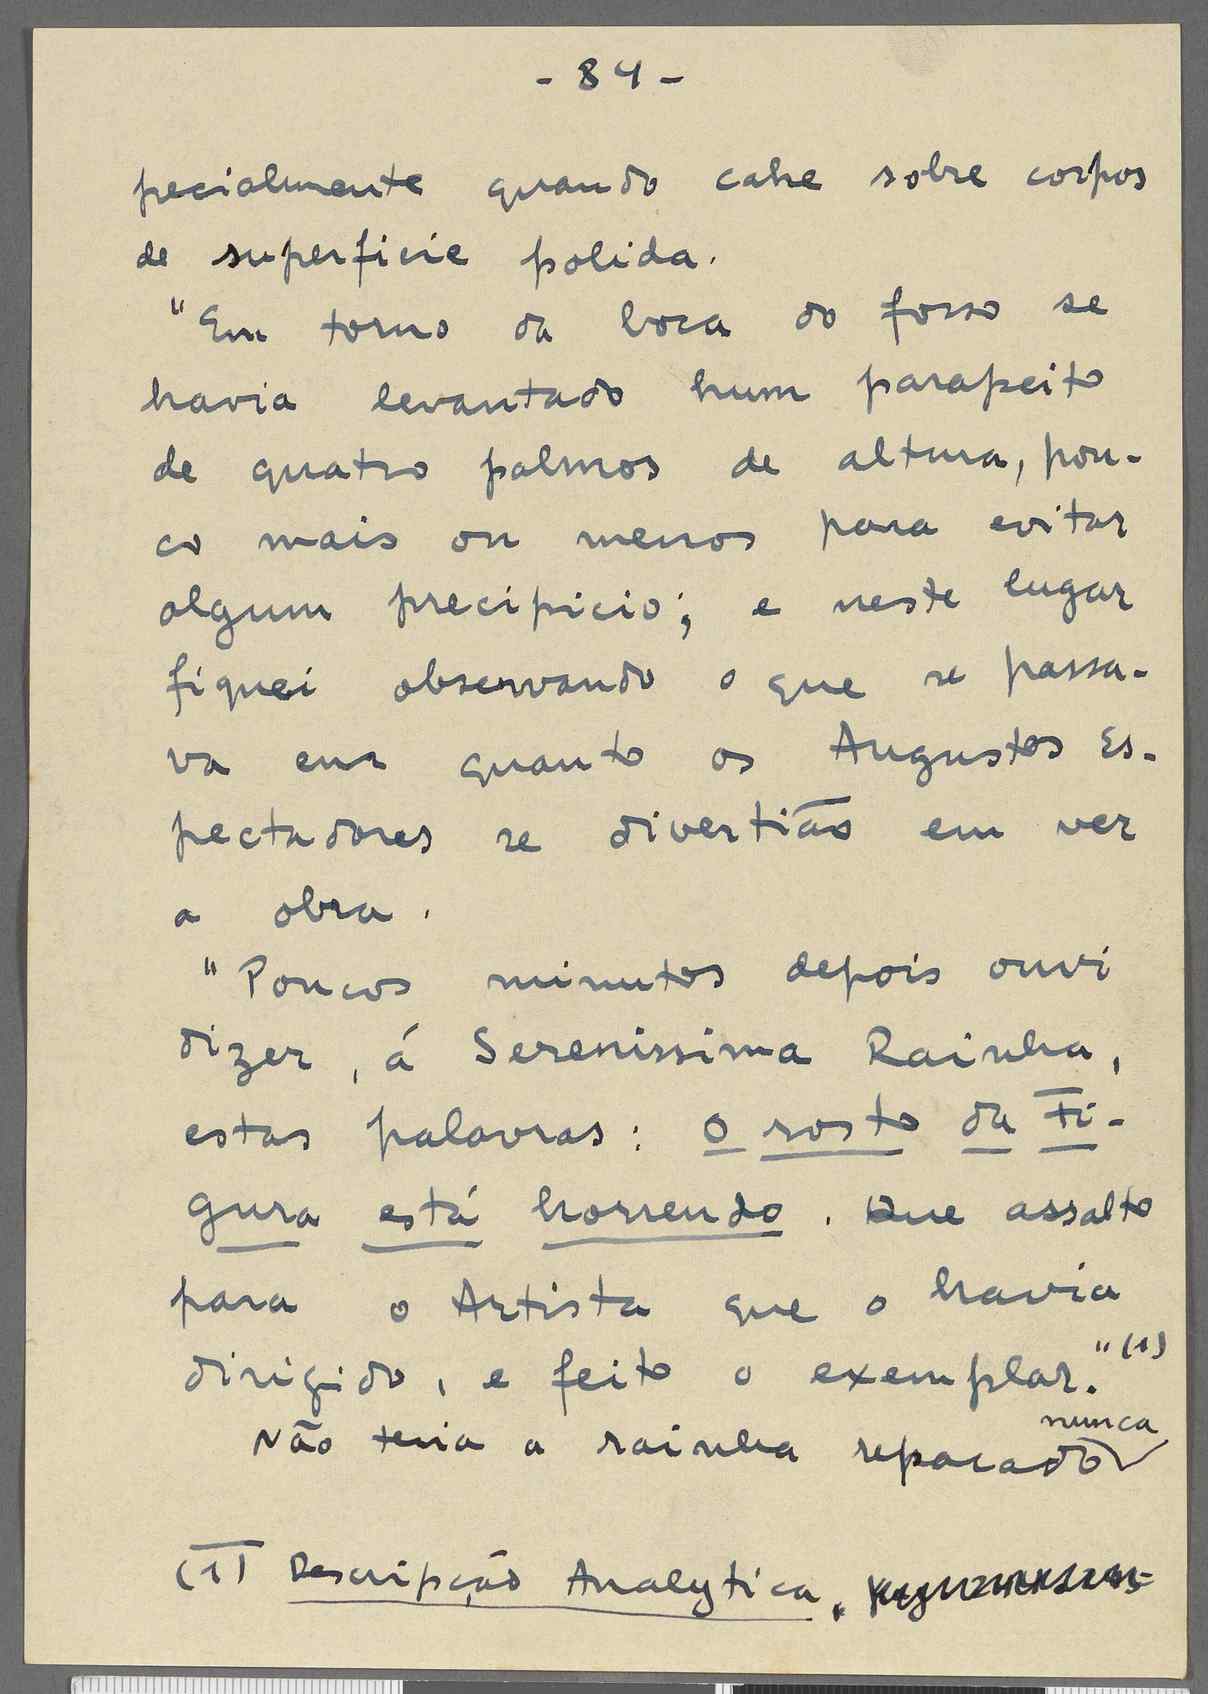 - 84 -
pecialmente quando cahe sobre corpos
de superficie polida.
"Em torno da boca do fosso se
havia levantado hum parapeito
de quatro palmos de altura, pou-
co mais ou menos para evitar
algum precipicio; e neste lugar
fiquei observando o que se passa-
va em quanto os Augustos Es-
pectadores se divertião em ver
a obra.
"Poucos minutos depois ouvi
dizer, á Serenissima Rainha,
estas palavras: o rosto da Fi-
gura está horrendo. Que assalto
para o Artista que o havia
dirigido, e feito o exemplar." (1)
nunca
Não teria a rainha reparado
(1) Descripção Analytica.